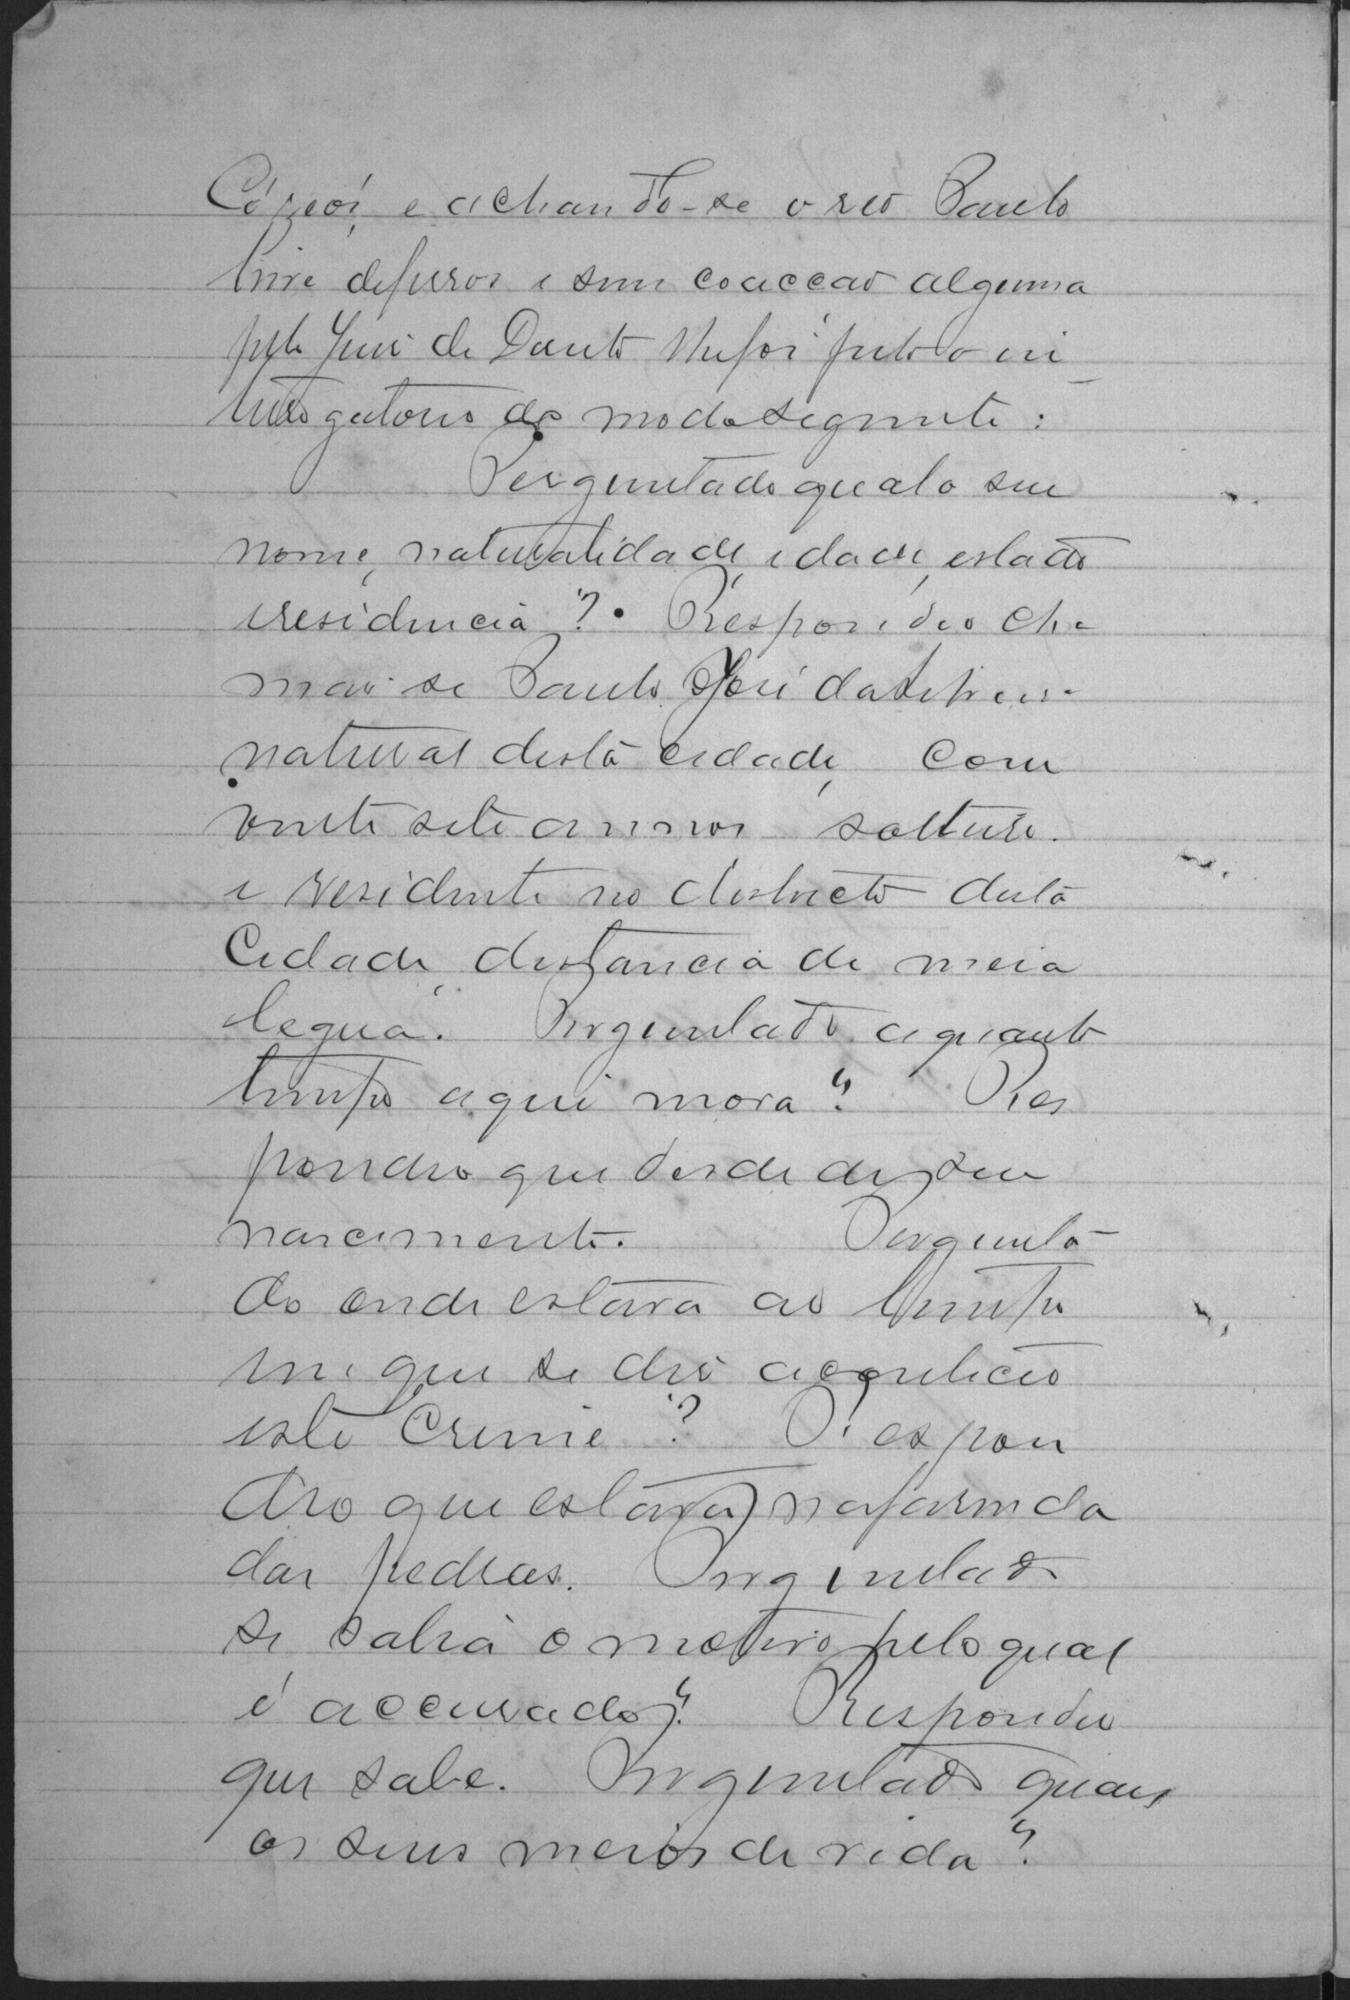 Có reos, e achando-se o reo Paulo
livre de ferros e sem coaccão alguma
pelo Juis de Direito lhe foi feito o in
terrogatorio do modo seguinte:
Perguntado qual o seu
nome, naturalidade, idade, estado
e residencia? Respondeo cha
mar-se Paulo José da
natural desta cidade, com
vinte sete annos solteiro.
e residente no districto desta
Cidade, distancia de meia
legua. Perguntado a quanto
tempo aqui mora? Res
pondeo que desde de seu
nascimento. Pergunta
do onde estava ao tempo
em que se diz acontecéo
este Crime? Respon
deo que estava na fazenda
das pedras. Perguntado
se sabia o motivo pelo qual
é accusado? Respondeo
que sabe. Perguntado quaes
os seus meios de vida?